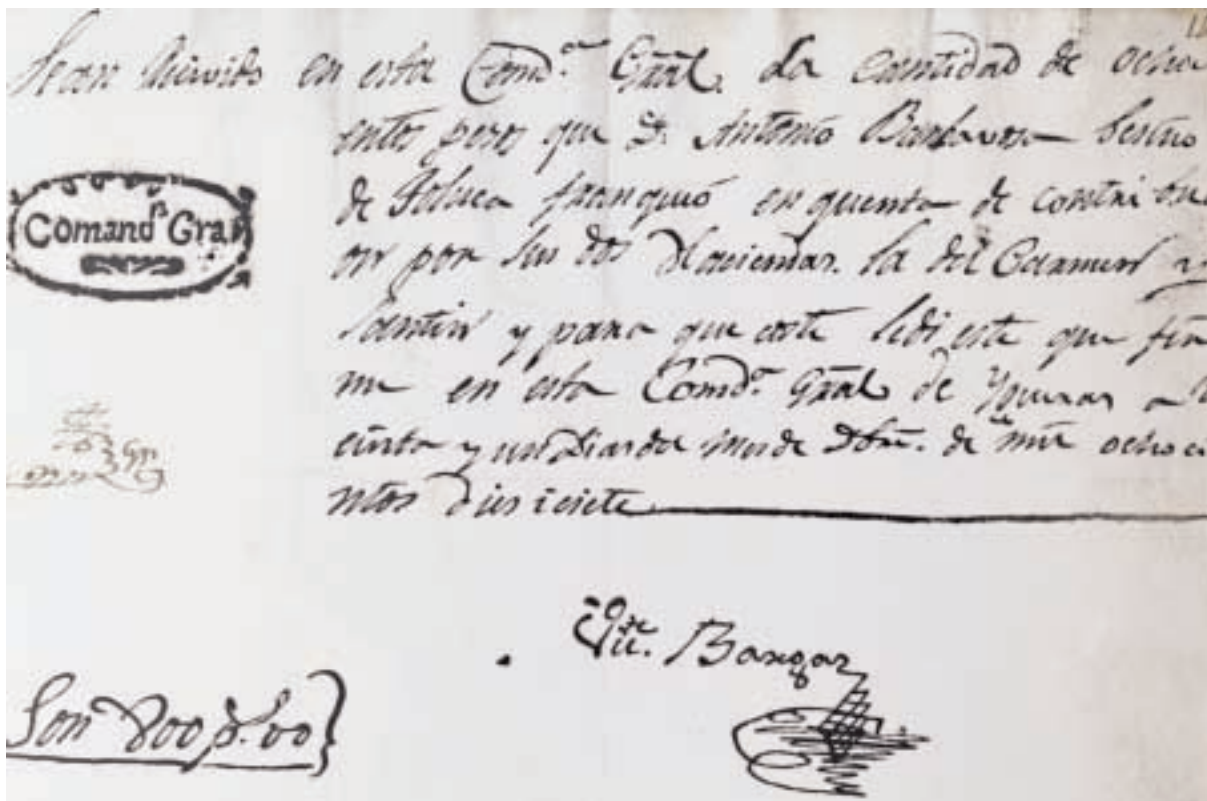 Sean recivido en esta Comd.ª Gral. La Cantidad de ocho
entos pesos que D. Antonio Besino
de Toluca franquió en quenta de contribu
on por sus dos Haciendas. la del Carmen y
y para que coste le di este que fir
me en esta Comd.ª Gral de a
einta y un dias del mes de Dbre. de mil ochoci
ntos diesiciete
Comandª Gral
Vte. Bargas
Son 800 p.s 00